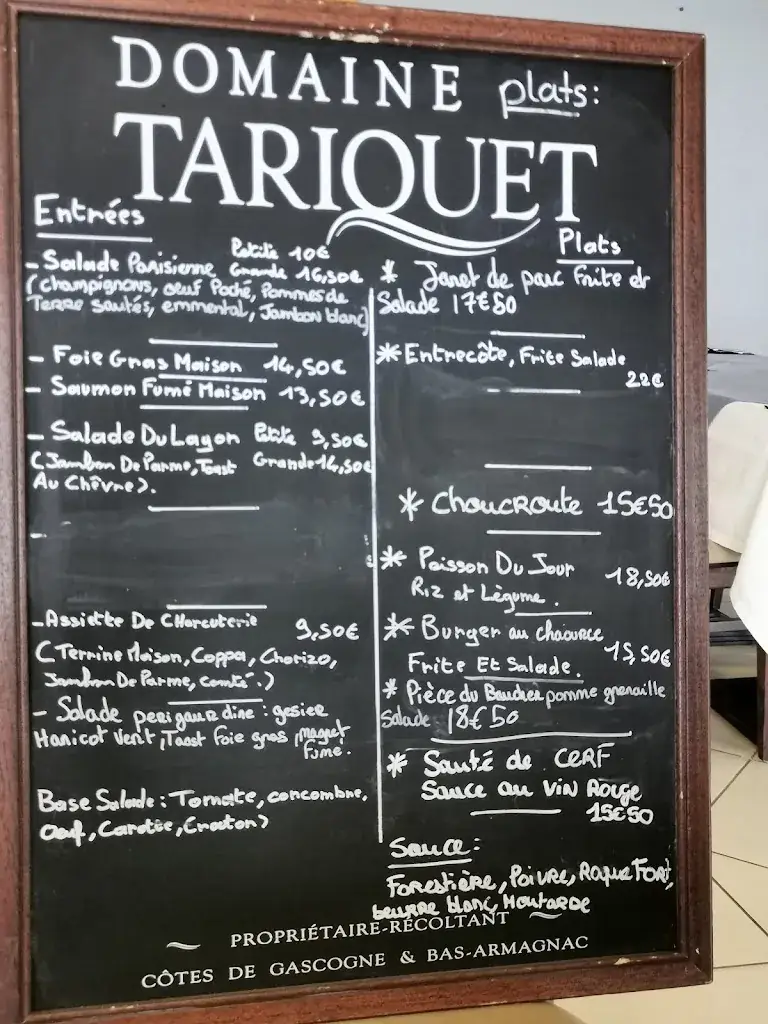 DOMAINE
plats:
TARIQUET
Entrées
- Salade Parisienne Petite 10€
Grande 16,50€
(champignons, oeuf Poché, Pommes de
Terre sautés, emmental, Jambon blanc)
- Foie Gras Maison 14,50€
- Saumon Fumé Maison 13,50€
- Salade Du Layon Petite 9,50€
(Jambon De Parme, Toast Grande 14,50€
Au Chêvre).
-
- Assiette De CHarcuterie 9,50€
(Terrine Maison, Coppa, Chorizo,
Jambon De Parme, comté.)
- Salade perigourdine : gesier
Haricot Vert, Toast foie gras, magret
Fumé.
Base Salade: Tomate, concombre,
Oeuf, Carotte, Croton)
Plats
* Jaret de porc Frite et
Salade 17€50
* Entrecôte, Frite Salade
22€
* Choucroute 15€50
* Poisson Du Jour 18,50€
Riz et Lègume.
* Burger au chaource
Frite Et Salade. 15,50€
* Pièce du Boucher pomme grenaille
Salade 18€50
* Sauté de CERF
Sauce au VIN Rouge
15€50
Sauce:
Forestière, Poivre, RoqueFort,
beurre blanc, Moutarde
PROPRIÉTAIRE-RÉCOLTANT
CÔTES DE GASCOGNE & BAS-ARMAGNAC